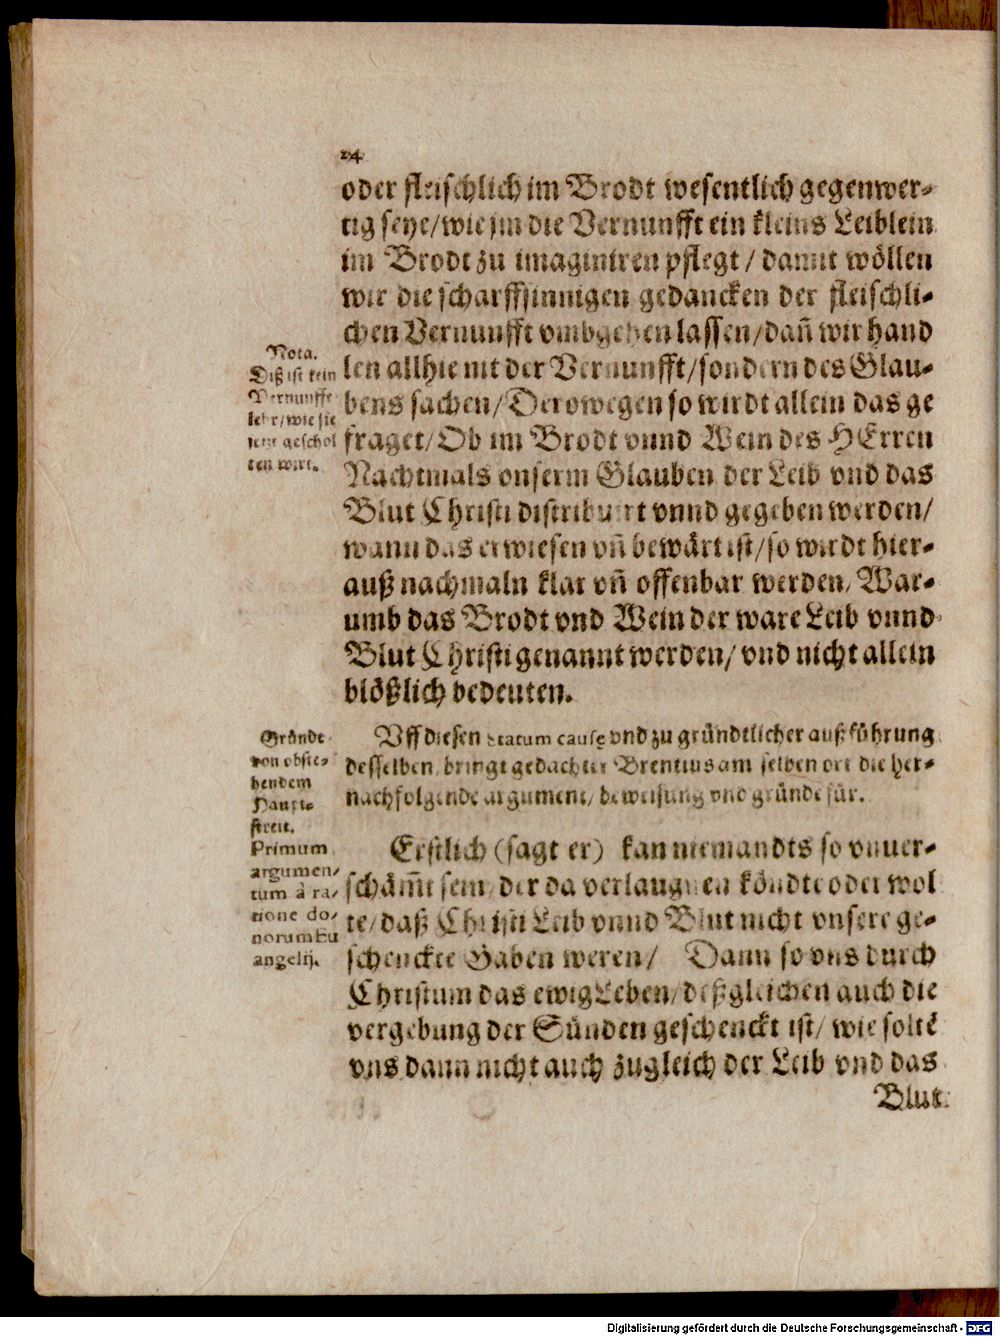 24
oder fleischlich im Brodt wesentlich gegenwer-
tig seye/wie jm die Vernunfft ein kleins Leiblein
im Brodt zu imaginiren pflegt/damit wöllen
wir die scharffsinnigen gedancken der fleischli-
chen Vernunfft vmbgehen lassen/dañ wir hand
len allhie nit der Vernunfft/sondern des Glau-
bens sachen/Derowegen so wirdt allein das ge
fraget/Ob im Brodt vnnd Wein des HErren
Nachtmals vnserm Glauben der Leib vnd das
Blut Christi distribuirt vnnd gegeben werden/
wann das erwiesen vñ bewärt ist/so wirdt hier-
auß nachmaln klar vñ offenbar werden/War-
umb das Brodt vnd Wein der ware Leib vnnd
Blut Christi genannt werden/vnd nicht allein
blößlich bedeuten.
Nota.
Diß ist kein
Vernunfft
lehr/wie sie
jetzt geschol
ten wirt.
Vff diesen statum causę vnd zu gründtlicher außführung
desselben/bringt gedachter Brentius am selben ort die her-
nachfolgende argument/beweisung vnd gründe für.
Gründt
von obste-
hendem
Haupt-
streit.
Primum
argumen-
tum à ra-
tione do-
norum Eu
angelij.
Erstlich (sagt er) kan niemandts so vnuer-
schäm̃t sein/der da verlaugnen köndte oder wol
te/daß Christi Leib vnnd Blut nicht vnsere ge-
schenckte Gaben weren/ Dann so vns durch
Christum das ewig Leben/deßgleichen auch die
vergebung der Sünden geschenckt ist/wie solte
vns dann nicht auch zugleich der Leib vnd das
Blut
Digitalisierung gefördert durch die Deutsche Forschungsgemeinschaft - DFG